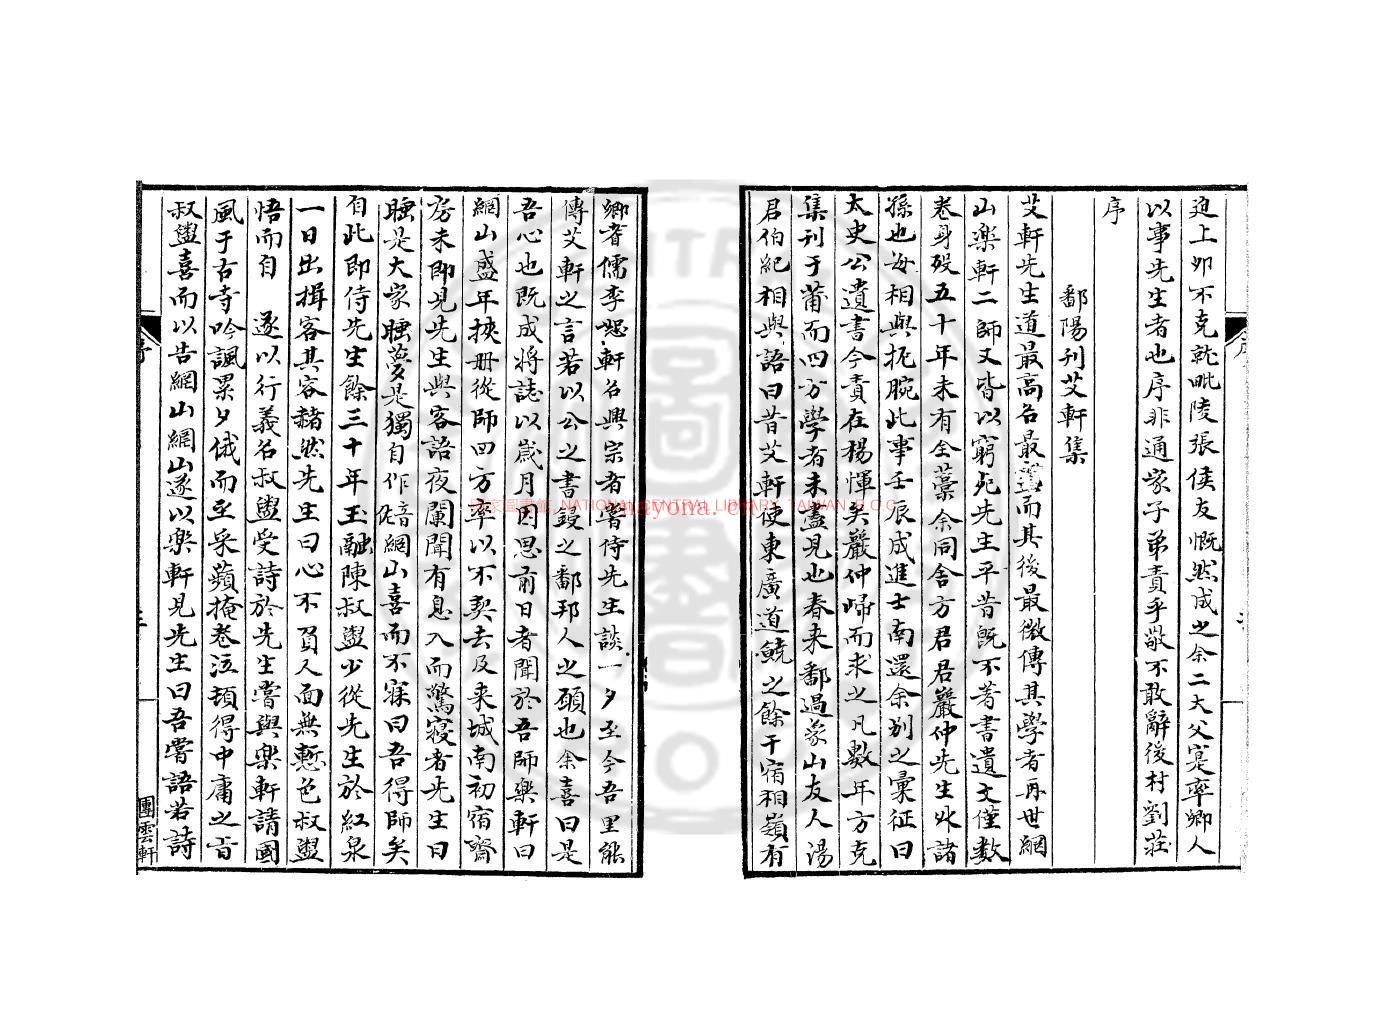 迫上卯不克就毗陵張侯友慨然成之余二大父寔率鄉人
以事先生者也序非通家子弟責乎敬不敢辭後村劉莊
序
鄱陽刊艾軒集
艾軒先生道最高名最盛而其後最微傳其學者再世網
山樂軒二師又皆以窮死先生平昔既不著書遺文僅數
卷身歿五十年未有全藁余同舍方君君嚴仲先生外諸
孫也每相與扼腕此事壬辰成進士南還余別之稟征曰
太史公遺書今責在楊惲矣嚴仲歸而求之凡數年方克
集刊于莆而四方學者未盡見也春來鄱過蒙山友人湯
君伯紀相與語曰昔艾軒使東廣道鐃之餘干宿相嶺有
鄉耆儒李恕軒名興宗者嘗侍先生談一夕至今吾里能
傳艾軒之言若以公之書鋟之鄱邦人之願也余喜曰是
吾心也既成將誌以歲月因思前日者聞於吾師樂軒曰
網山盛年挾冊從師四方率以不契去及来城南初宿齋
房未即見先生與客語夜闌聞有息入而驚寢者先生曰
睡是大家睡夢是獨自作佐音網山喜而不寐曰吾得師矣
自此即侍先生餘三十年玉融陳叔盥少從先生於紅泉
一日出揖客其容赭然先生曰心不負人面無慙色叔盥
悟而自 遂以行義名叔盥受詩於先生嘗與樂軒請國
風于古寺吟諷累夕俄而至采蘋掩卷泣頓得中庸之旨
叔盥喜而以告網山網山遂以樂軒見先生曰吾嘗語若詩
團雲軒
國家圖書館 NATIONAL CENTRAL LIBRARY, TAIWAN, R.O.C
nayona.cn